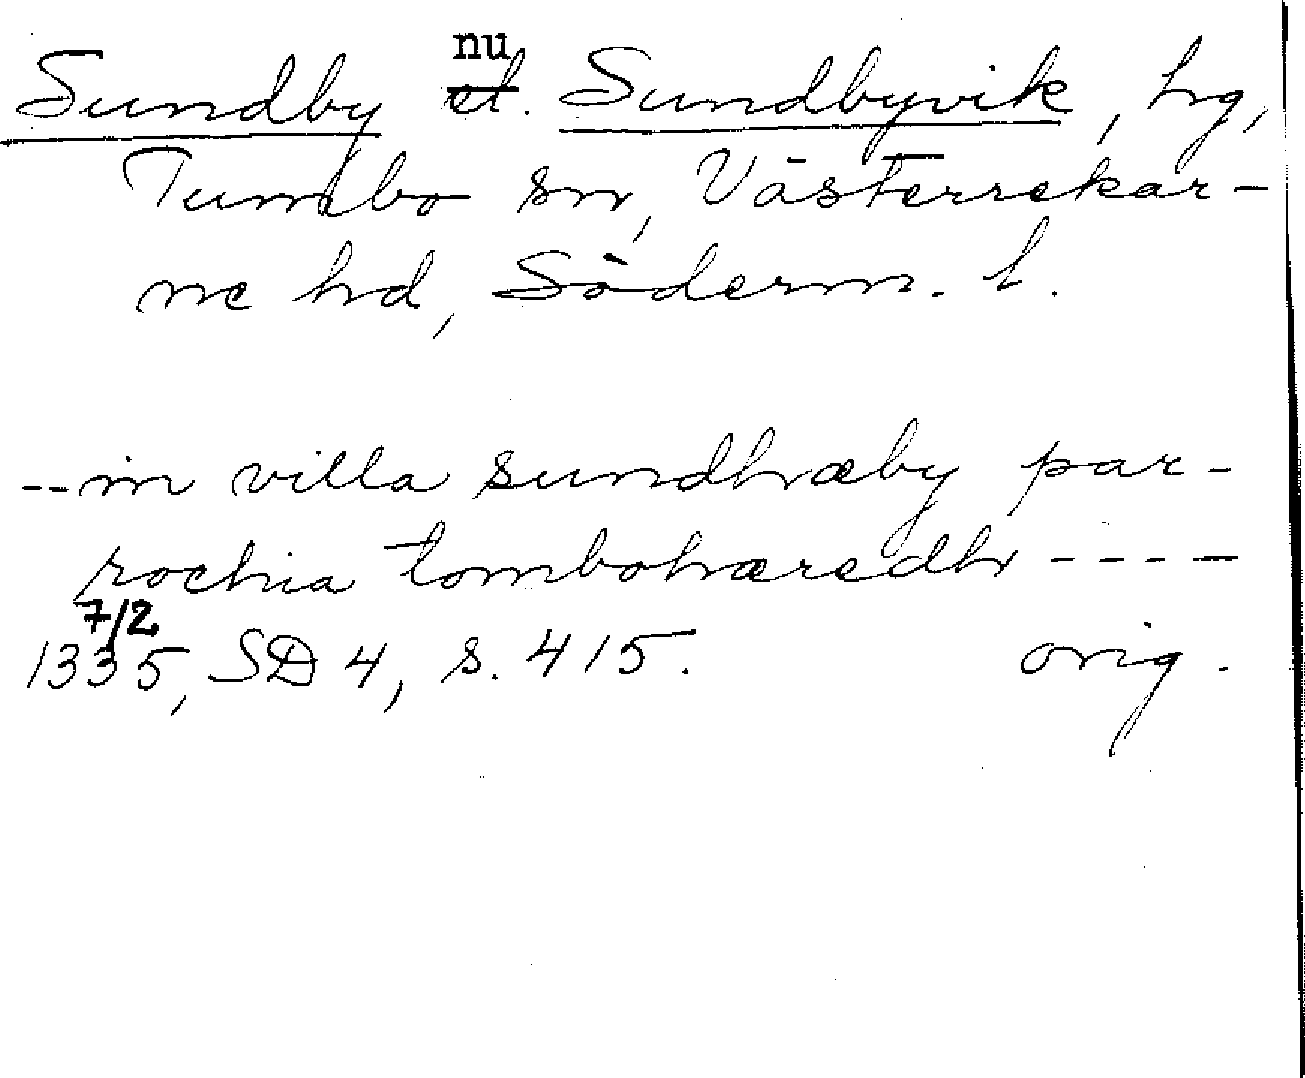 nu
Sundby el. Sundbyvik, hg,
Tumbo sn, Västerrekar-
ne hd, Söderm. l.
-- in villa sundhæby par-
rochia tombohæredh ----
7/2
1335, SD 4, s. 415. orig.